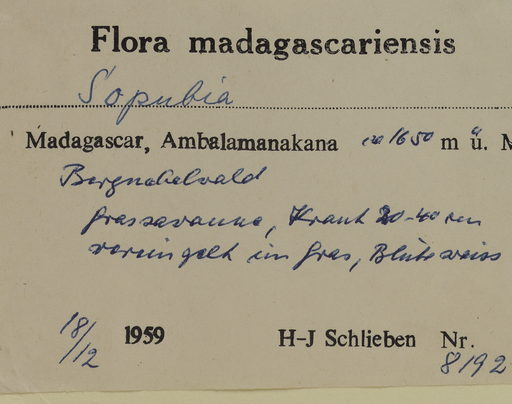 Flora madagascariensis
Sopubia
Madagascar, Ambalamanakana ca 1650 m ü. M
Bergnebelwald
Grassavanne, Kraut 20-40 cm
vereinzelt im Gras, Blüte weiss
18/12 1959 H-J Schlieben Nr.
8192